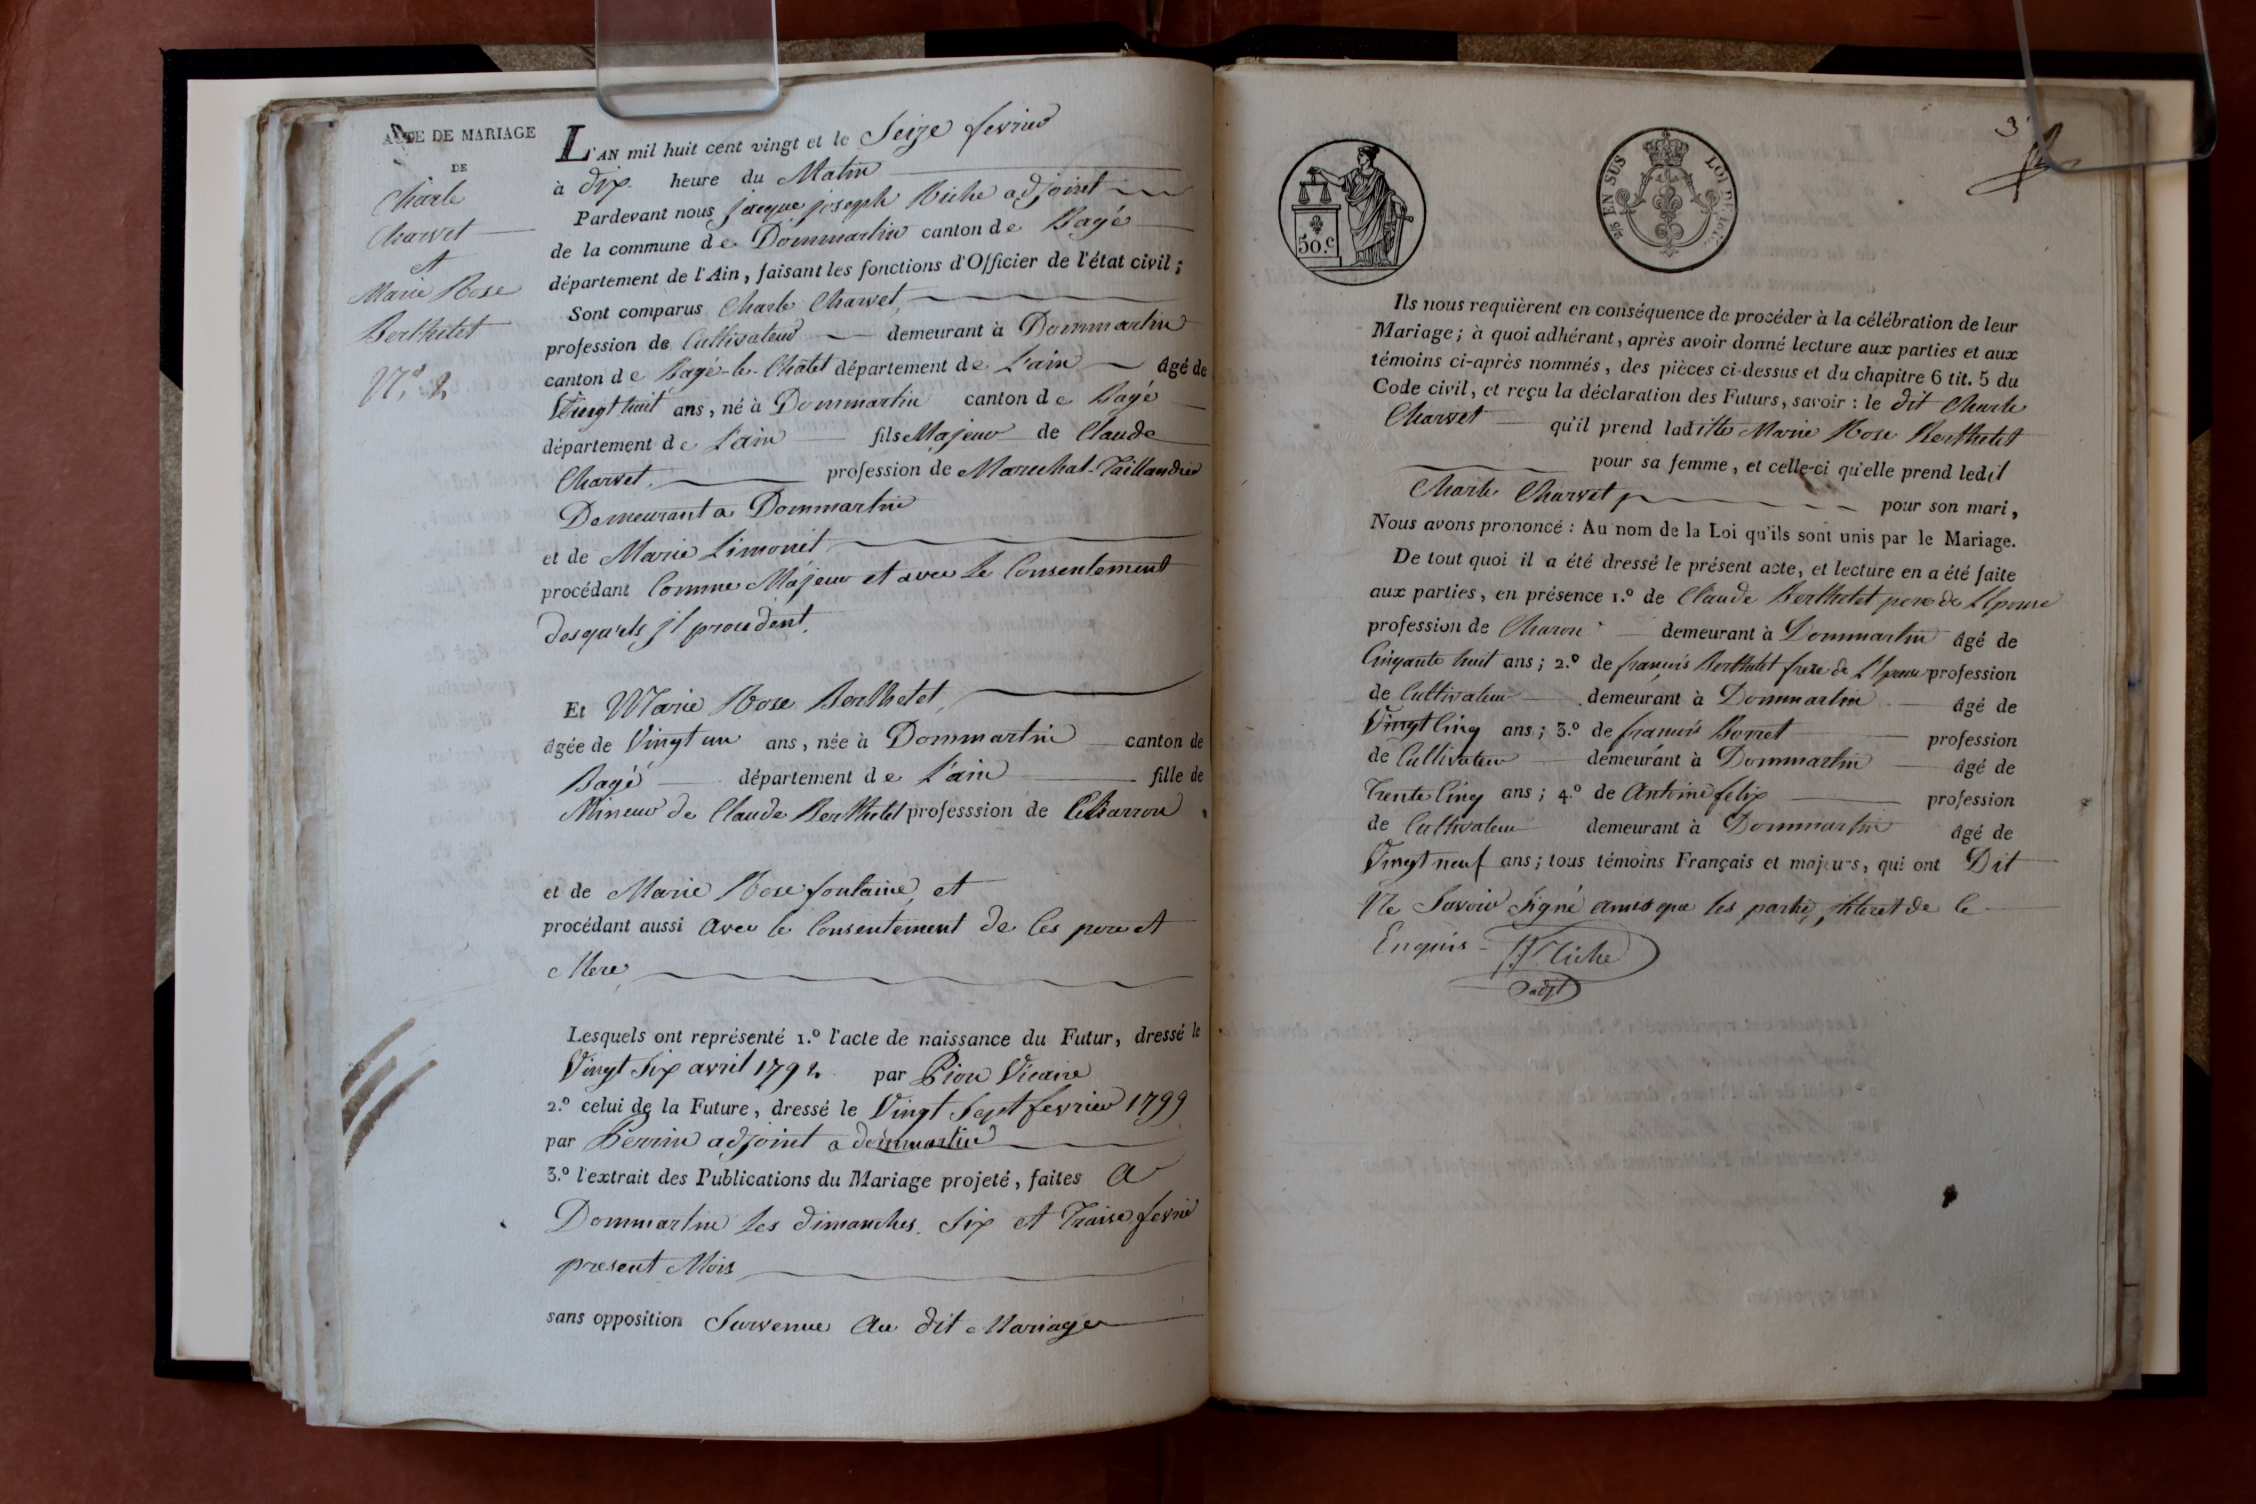 ACTE DE MARIAGE
DE
Charle
Charvet
et
Marie Rose
Berthelet
N.º 2
L'AN mil huit cent vingt et le Seize fevrier
à dix heure du Matin
Pardevant nous jacque joseph Riche adjoint
de la commune de Dommartin canton de Bagé
département de l'Ain, faisant les fonctions d'Officier de l'état civil;
Sont comparus Charle Charvet,
profession de Cultivateur demeurant à Dommartin
canton de Bagé-le-Chatel département de L'ain âgé de
Vingt huit ans, né à Dommartin canton de Bagé
département de L'ain fils Majeur de Claude
Charvet, profession de Marechal-Taillandier
Demeurant a Dommartin
et de Marie Limonet
procédant Comme Majeur et avec Le Consentement
desquels jl procedent.
Et Marie Rose Berthelet,
âgée de Vingt un ans, née à Dommartin canton de
Bagé département de L'ain fille de
Mineur de Claude Berthelet professsion de Charron
et de Marie Rose fontaine, et
procédant aussi avec le Consentement de Ces pere et
Mere,
Lesquels ont représenté 1.º l'acte de naissance du Futur, dressé le
Vingt Six avril 1792 par Pion Vicaire
2.º celui de la Future, dressé le Vingt Sept fevrier 1799
par Perrin adjoint a dommartin
3.º l'extrait des Publications du Mariage projeté, faites a
Dommartin les dimanches Six et Traise fevrie
present Mois
sans opposition Survenue au dit Mariage
3
50.c
EN SUS
LOI DE
Ils nous requièrent en conséquence de procéder à la célébration de leur
Mariage; à quoi adhérant, après avoir donné lecture aux parties et aux
témoins ci-après nommés, des pièces ci-dessus et du chapitre 6 tit. 5 du
Code civil, et reçu la déclaration des Futurs, savoir: le dit Charle
Charvet qu'il prend laditte Marie Rose Berthelet
pour sa femme, et celle-ci qu'elle prend ledit
Charle Charvet pour son mari,
Nous avons prononcé: Au nom de la Loi qu'ils sont unis par le Mariage.
De tout quoi il a été dressé le présent acte, et lecture en a été faite
aux parties, en présence 1.º de Claude Berthelet pere de L'Epouse
profession de Charon demeurant à Dommartin âgé de
Cinqante huit ans; 2.º de francois Berthelet frere de L'Epouse profession
de Cultivateur demeurant à Dommartin âgé de
Vingt Cinq ans; 3.º de francois Borret profession
de Cultivateur demeurant à Dommartin âgé de
Trente Cinq ans; 4.º de Antoine felix profession
de Cultivateur demeurant à Dommartin âgé de
Vingt neuf ans; tous témoins Français et majeurs, qui ont Dit
Ne Savoir Signé que les partie, de ce
Enquis JJ Riche
adjt